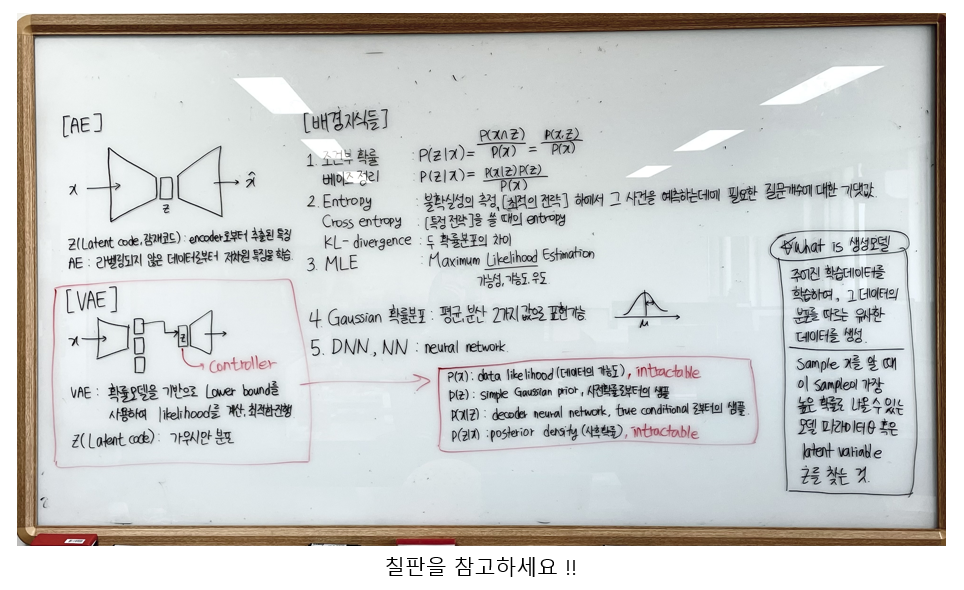 [AE]
x
z
x̂
Z(Latent code, 잠재코드) : encoder로부터 추출된 특징
AE : 라벨링되지 않은 데이터로부터 저차원 특징을 학습.
[VAE]
x
z
controller
VAE : 확률모델을 기반으로 Lower bound를
사용하여 likelihood를 계산, 최적화진행
Z(Latent code) : 가우시안 분포
[배경지식들]
1. 조건부 확률 : P(z|x) = P(x∩z)/P(x) = P(x,z)/P(x)
베이즈 정리 : P(z|x) = P(x|z)P(z)/P(x)
2. Entropy : 불확실성의 측정, [최적의 전략] 하에서 그 사건을 예측하는데에 필요한 질문개수에 대한 기댓값.
Cross entropy : [특정 전략]을 쓸 때의 entropy
KL-divergence : 두 확률분포의 차이
3. MLE : Maximum Likelihood Estimation
가능성, 가능도, 우도
4. Gaussian 확률분포 : 평균, 분산 2가지 값으로 표현가능
μ
5. DNN, NN : neural network.
P(x) : data likelihood (데이터의 가능도), intractable
P(z) : simple Gaussian prior, 사전확률로부터의 샘플
P(x|z) : decoder neural network, true conditional로부터의 샘플.
P(z|x) : posterior density (사후확률), intractable
☆What is 생성모델
주어진 학습데이터를
학습하여, 그 데이터의
분포를 따르는 유사한
데이터를 생성.
Sample x를 알 때
이 sample이 가장
높은 확률로 나올 수 있는
모델 파라미터 θ 혹은
latent variable
z를 찾는 것.
칠판을 참고하세요 !!